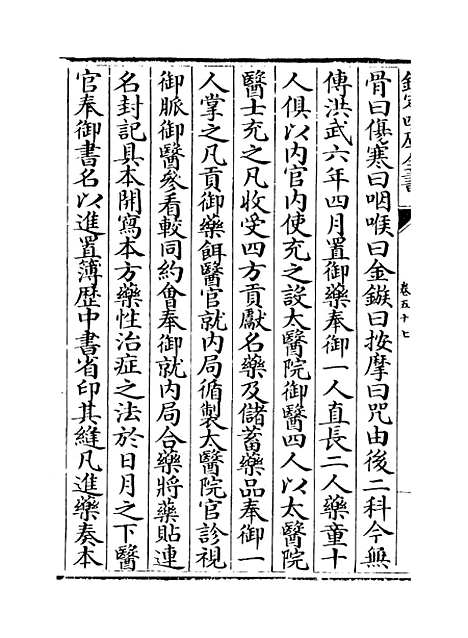 欽定四庫全書
卷五十七
骨曰傷寒曰咽喉曰金鏃曰按摩曰咒由後二科今無
傳洪武六年四月置御藥奉御一人直長二人藥童十
人俱以内官内使充之設太醫院御醫四人以太醫院
醫士充之凡收受四方貢獻名藥及儲蓄藥品奉御一
人掌之凡貢御藥餌醫官就内局循製太醫院官診視
御脈御醫參看較同約會奉御就内局合藥將藥貼連
名封記具本開寫本方藥性治症之法於日月之下醫
官奉御書名以進置薄歴中書省印其縫凡進藥奏本